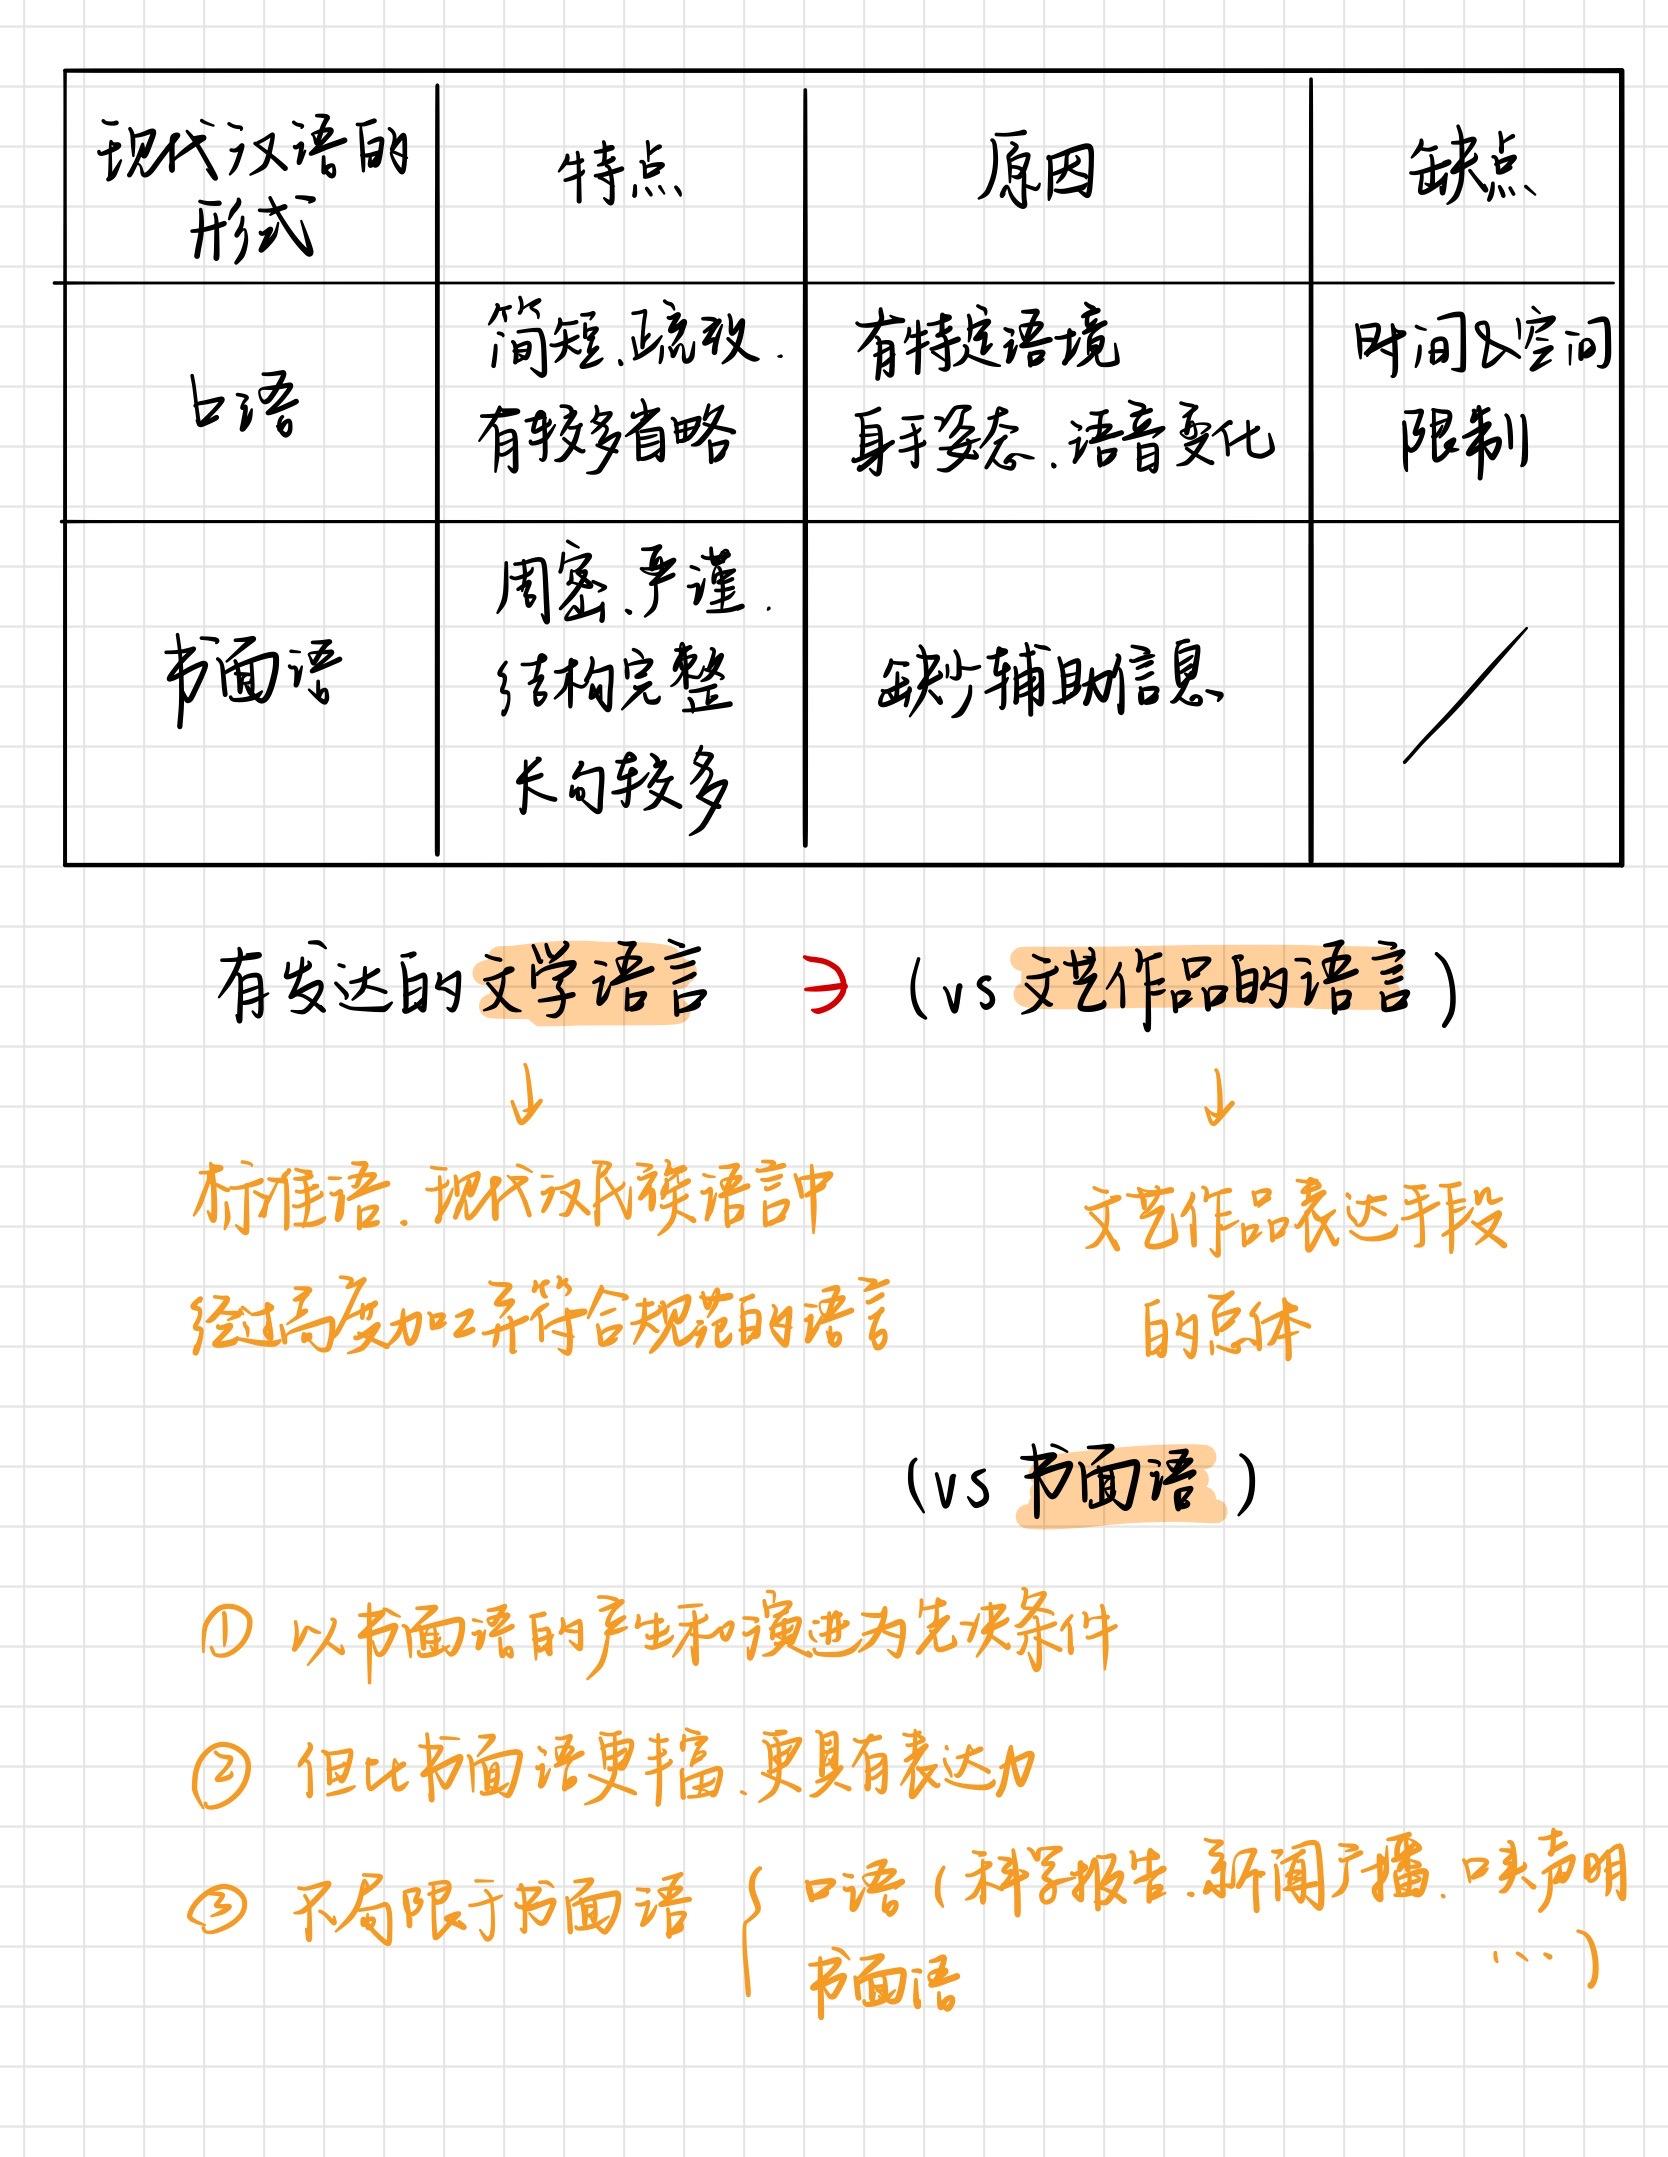 现代汉语的
形式
特点
原因
缺点
口语
简短、疏散.
有较多省略
有特定语境
身手姿态、语音变化
时间&空间
限制
书面语
周密、严谨.
结构完整
长句较多
缺少辅助信息
有发达的文学语言 ∋ (vs 文艺作品的语言)
↓ ↓
标准语、现代汉民族语言中
经过高度加工并符合规范的语言
文艺作品表达手段
的总体
(vs 书面语)
① 以书面语的产生和演进为先决条件
② 但比书面语更丰富、更具有表达力
③ 不局限于书面语 { 口语 (科学报告、新闻广播、口头声明
...)
书面语